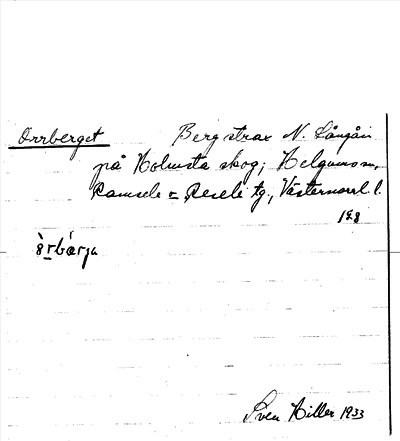 Orrberget Berg strax N. Långån
på Holmsta skog; Helgums sn,
Ramsele - Resele tg., Västernorrl. l.
198
Sven Hiller 1933